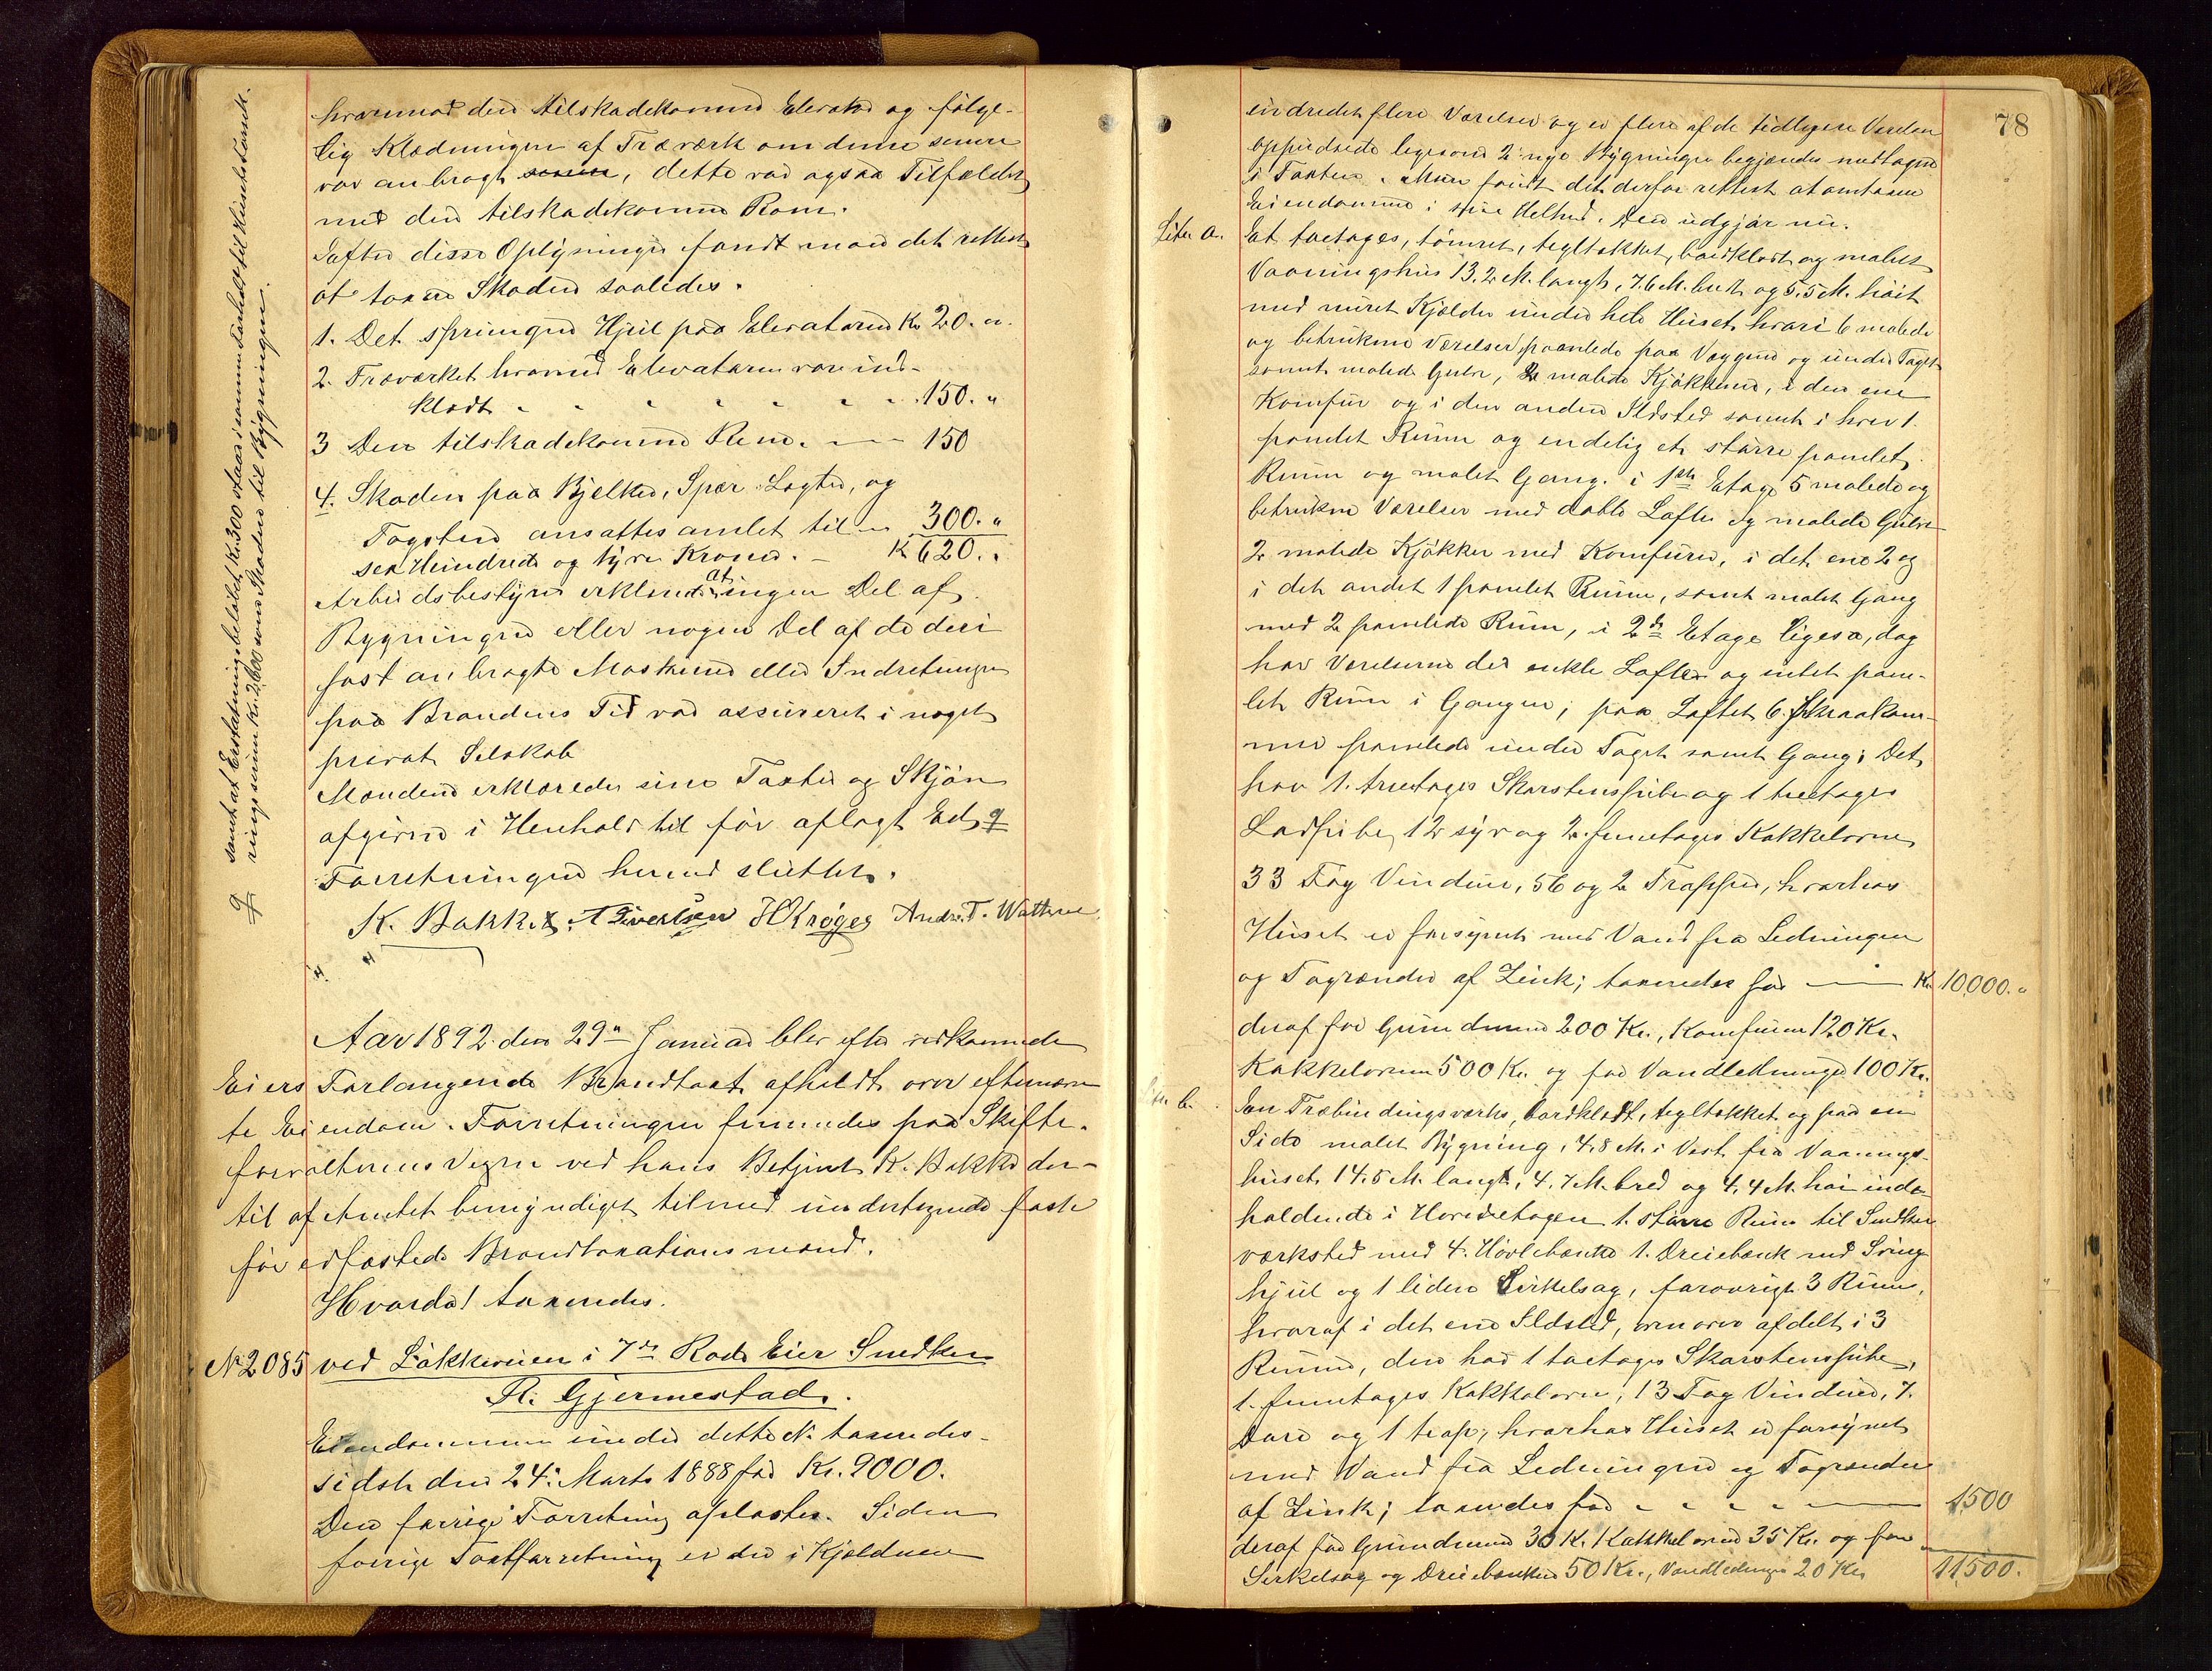 hvormod den tilskadekomne Elevator og følge-
lig Klædningen af Træværk om denne senere
var anbragt senere, dette var ogsaa Tilfældet
med den tilskadekomne Rem.
Efter disse Oplysninger fandt man det rettest
at taxere Skaden saaledes.
1. Det sprungne Hjul paa Elevatoren Kr. 20. "
2. Træværket hvormed Elevatoren var ind-
klædt - - - - - - - 150. "
3 Den tilskadekomne Rem. — - 150
4. Skaden paa Bjelker, Spær Lægter, og
Tagsten ansattes samlet til - 300. "
sex Hundrede og tyve Kroner. - Kr 620. "
Arbeidsbestyrer erklærede at ingen Del af
Bygningen eller nogen Del af de deri
fast anbragte Maskiner eller Indretninger
paa Brandens Tid var assureret i noget
privat Selskab
Mændene erklærede sine Taxter og Skjøn
afgivne i Henhold til før aflagt Ed ꝗ
Forretningen hermed sluttet.
K. Bakke. A Sivertsen H Krøger Andr. T. Wathne
ꝗ samt at Erstatningsbeløbet Kr. 300 staar i samme Forhold til Husets Forsik-
ringssum Kr. 2,600 som Skaden til Bygningen.
Aar 1892 den 29de Januar blev efter vedkommende
Eiers Forlangende Brandtaxt afholdt over efternævn-
te Eiendom. Forretningen fremmedes paa Skifte-
forvalterens Vegne ved hans Betjent K. Bakke der-
til af Amtet bemyndiget tilmed undertegnede faste
før edfæstede Brandtaxationsmænd.
Hvorda! taxeredes.
No 2085 ved Løkkeveien i 7de Rode Eier Snedker
R. Gjermestad.
Eiendommen under dette No taxeredes
sidst den 24de Marts 1888 for Kr. 9000.
Den forrige Forretning oplæstes. Siden
forrige Taxtforretning er der i Kjelderen
78
indredet flere Værelser og er flere af de tidligere Værelser
oppudsede ligesom 2 nye Bygninger begjæredes medtagne
i Taxten. Man fandt det derfor rettest at omtaxere
Eiendommen i sin Helhed. Den udgjør nu.
Liter a. Et toetages, tømret, tegltækket, bordklædt og malet
Vaaningshus 13.2 M. langt, 7.6 M. bredt og 5.5 M. høit
med muret Kjælder under hele Huset, hvori 6 malede
og betrukne Værelser, panelede paa Væggene og under Taget
samt malede Gulve, 2 malede Kjøkkener, i den ene
Komfur og i den anden Ildsted samt i hver 1
panelet Rum og endelig et større panelet
Rum og malet Gang. i 1ste Etage 5 malede og
betrukne Værelser med doble Lofter og malede Gulve
2 malede Kjøkken med Komfurer, i det ene 2 og
i det andet 1 panelet Rum, samt malet Gang
med 2 panelede Rum, i 2de Etage ligesaa, dog
har Værelserne der enkle Lofter og intet pane-
let Rum i Gangen; paa Loftet 6 Skraakam-
mere panelede under Taget samt Gang; Det
har 1 treetages Skorstenspibe og 1 treetages
Lodpibe, 12 syv og 2 femetages Kakkelovne,
33 Fag Vinduer, 56 og 2 Trapper, hvorhos
Huset er forsynet med Vand fra Ledningen
og Tagrender af Zink; taxeredes for — Kr. 10,000. "
deraf for Grundmuren 200 Kr., Komfurene 120 Kr.
Kakkelovnene 500 Kr. og for Vandledningen 100 Kr.
Liter b. En Træbindingsværks, bordklædt, tegltækket og paa en
Side malet Bygning, 4.8 M. i Vest fra Vaanings-
huset, 14.5 M. langt, 4.7 M. bred og 4,4 M. høi inde-
holdende i Hovedetagen 1 større Rum til Snedker-
værksted med 4 Høvlebænke 1 Dreiebænk med Sving-
hjul og 1 liden Sirkelsag, forøvrigt 3 Rum,
hvoraf i det ene Ildsted, ovenover afdelt i 3
Rumm, den har 1 toetages Skorstenspibe,
1 femetages Kakkelovn, 13 Fag Vinduer, 7
Døre og 1 trap; hvorhos Huset er forsynet
med Vand fra Ledningen og Tagrender
af Zink; taxeredes for - - - - — 1500
deraf for Grundmuren 30 Kr. Kakkelovnen 35 Kr. og for
Serkelsag og Dreiebænken 50 Kr., Vandledningen 20 Kr. 11,500.